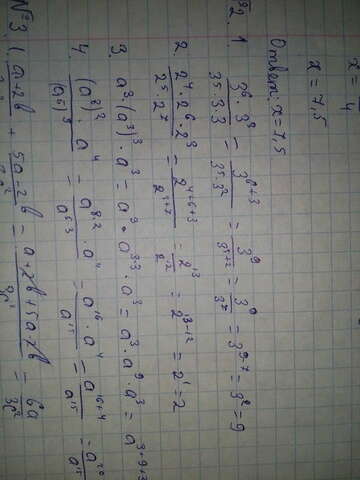 x = 4
x = 7,5
Ответ: x = 7,5
№2. 1. 3⁶·3³ / 3⁵·3·3 = 3⁶⁺³ / 3⁵·3² = 3⁹ / 3⁵⁺² = 3⁹ / 3⁷ = 3⁹⁻⁷ = 3² = 9
2. 2⁴·2⁶·2³ / 2⁵·2⁷ = 2⁴⁺⁶⁺³ / 2⁵⁺⁷ = 2¹³ / 2¹² = 2¹³⁻¹² = 2¹ = 2
3. a³·(a³)³·a³ = a³·a³·³·a³ = a³·a⁹·a³ = a³⁺⁹⁺³
4. (a⁸)²·a⁴ / (a⁵)³ = a⁸·²·a⁴ / a⁵·³ = a¹⁶·a⁴ / a¹⁵ = a¹⁶⁺⁴ / a¹⁵ = a²⁰ / a¹⁵
№3 1. a+2b + 5a-2b = a+2b+5a-2b = 6a